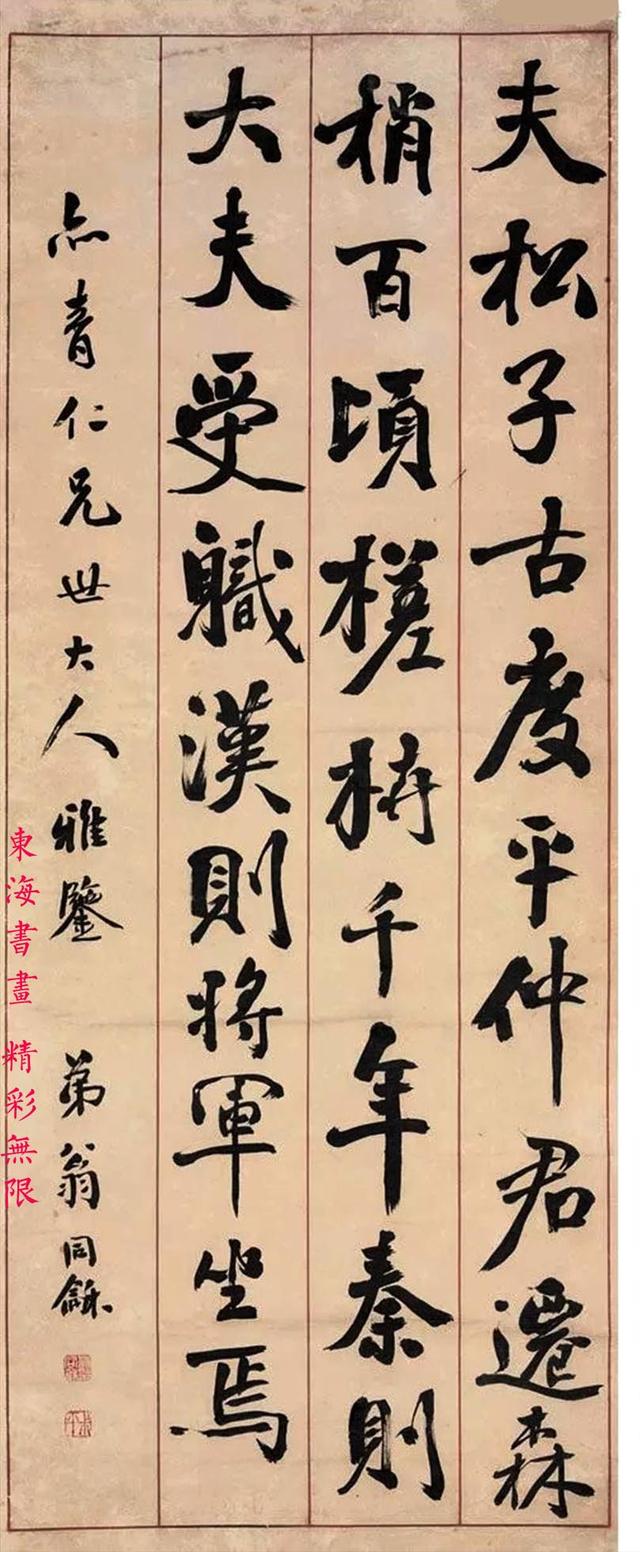 夫松子古度平仲君遷森
稍百頃槎枿千年秦則
大夫受軄漢則將軍坐焉
亦青仁兄世大人雅鑒 弟翁同龢
東海書畫 精彩無限